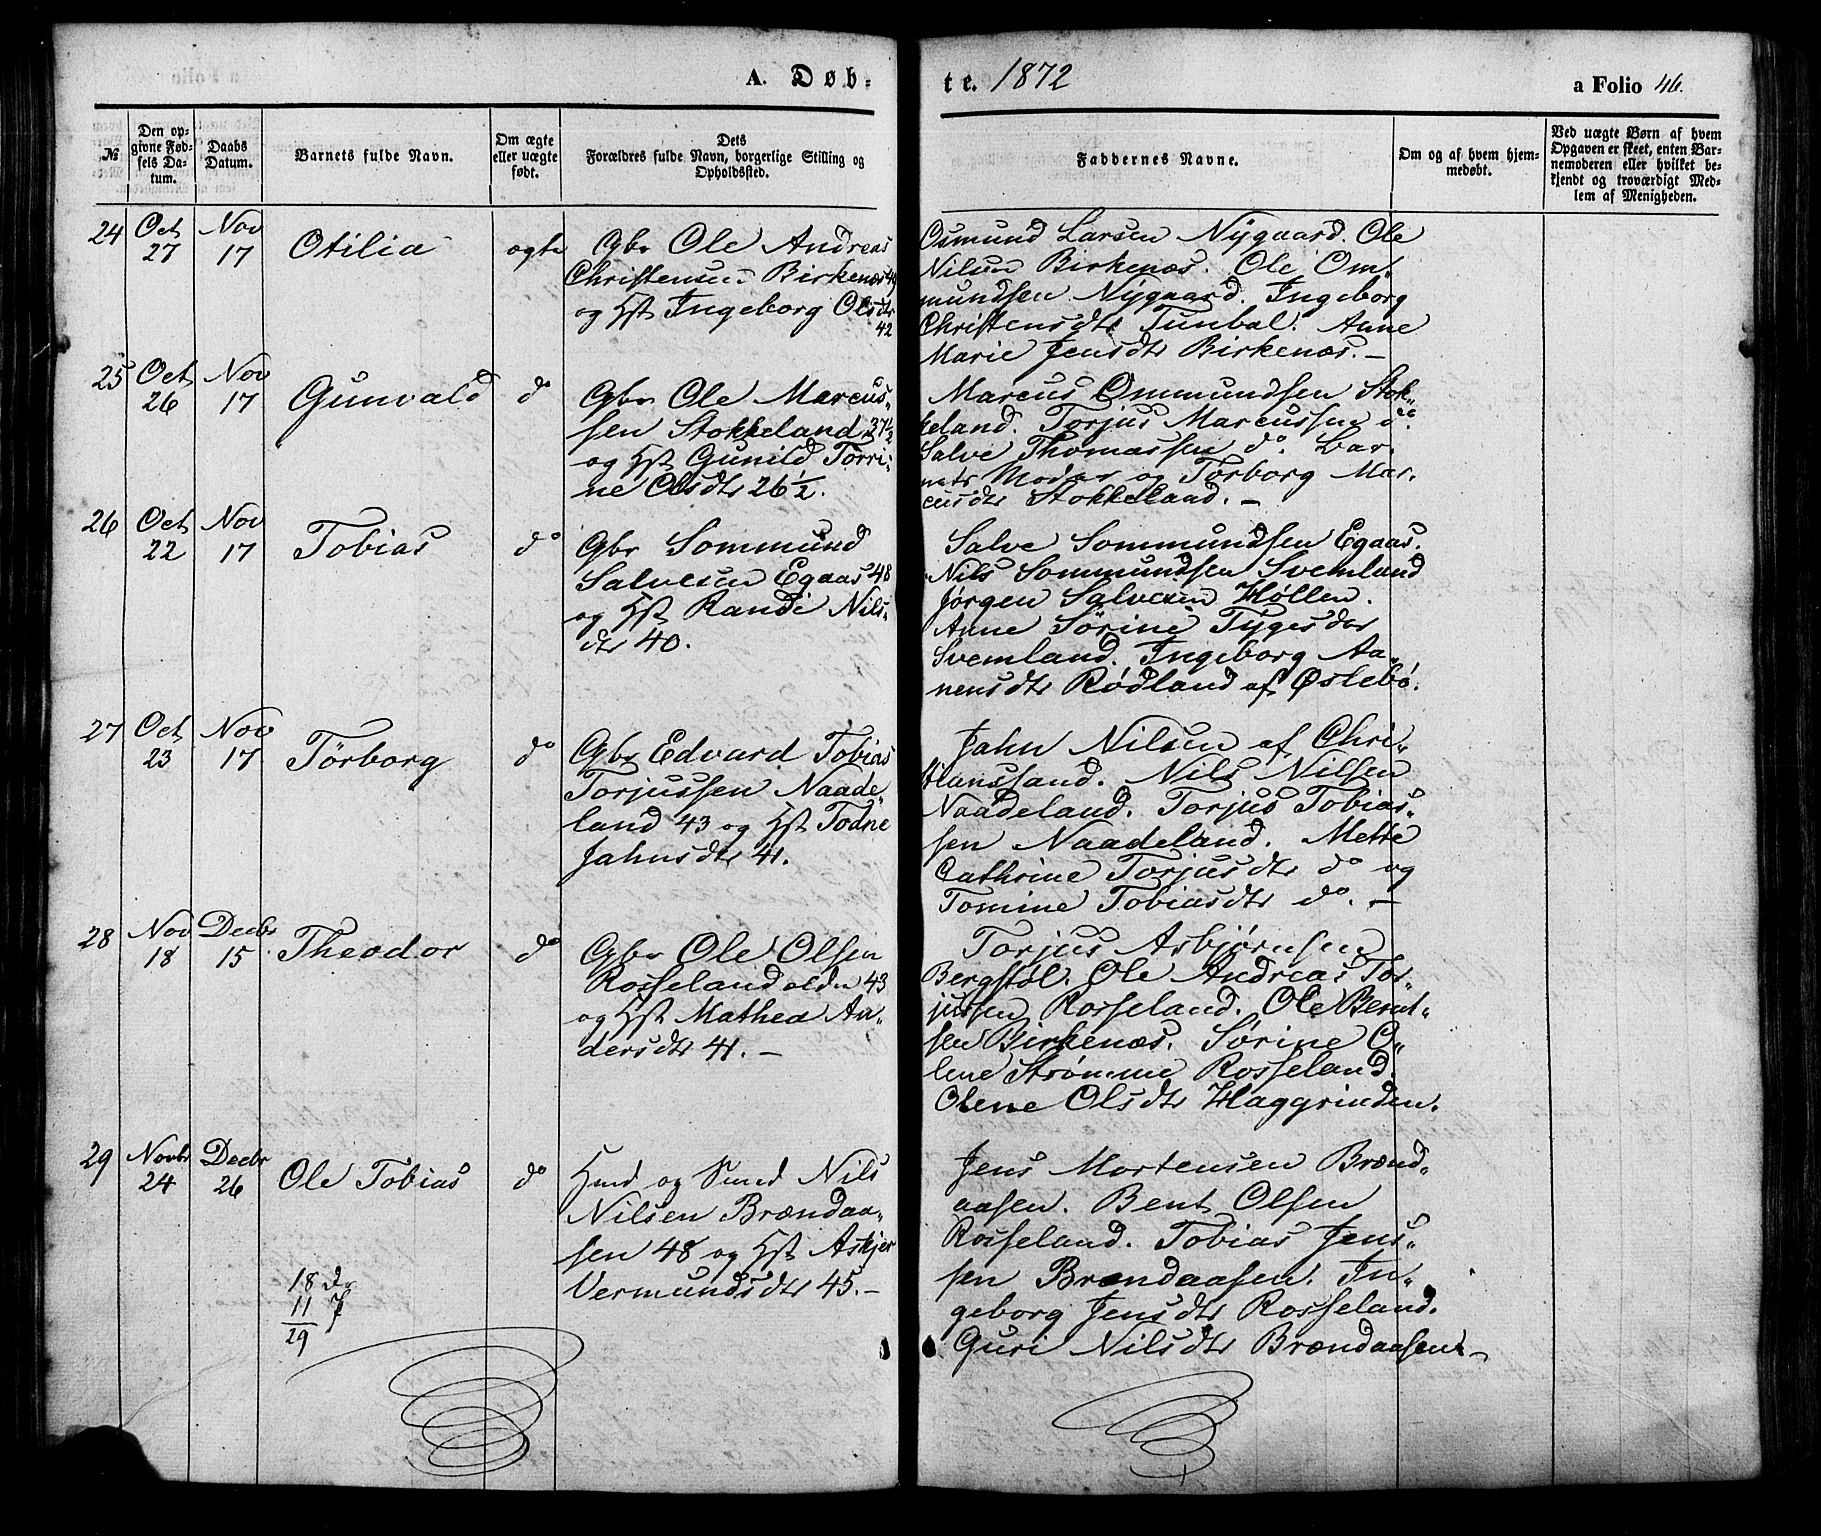 A. Døb-
te. 1872
a Folio 46.
№
Den op-
givne Fød-
sels Da-
tum.
Daabs
Datum.
Barnets fulde Navn.
Om ægte
eller uægte
født.
Dets
Forældres fulde Navn, borgerlige Stilling og
Opholdssted.
Faddernes Navne.
Om og af hvem hjem-
medøbt.
Ved uægte Børn af hvem
Opgaven er skeet, enten Bar-
nemoderen eller hvilket be-
kjendt og troværdigt Med-
lem af Menigheden.
24 Oct 27 Nov 17 Otilia ægte
Gbr Ole Andreas
Christensen Birkenæs 49
og Hst Ingeborg Olsdtr
42
Osmund Larsen Nygaard. Ole
Nilsen Birkenæs. Ole Om-
mundsen Nygaard. Ingeborg
Christensdtr Tunbal. Anne
Marie Jensdtr Birkenæs. —
25 Oct 26 Nov 17 Gunvald do
Gbr Ole Marcus-
sen Stokkeland 37½
og Hst Gunild Torri-
ne Olsdtr 26½.
Marcus Ommundsen Stok-
keland. Torjus Marcussen do.
Salve Thomassen do. Bar-
nets Moder og Torborg Mar-
cusdtr Stokkeland. —
26 Oct 22 Nov 17 Tobias do
Gbr Sommund
Salvesen Egaas 48
og Hst Randi Nils-
dtr 40.
Salve Sommundsen Egaas.
Nils Sommundsen Svemland
Jørgen Salvesen Høllen.
Anne Sørine Tygesdtr
Svemland. Ingeborg Aa-
nensdtr Rødland af Øslebø.
27 Oct 23 Nov 17 Tørborg do
Gbr Edvard Tobias
Torjussen Naade-
land 43 og Hst Todne
Jahnsdtr 41.
Jahn Nilsen af Chri-
stianssand. Nils Nilsen
Naadeland. Torjus Tobias-
sen Naadeland. Mette
Cathrine Torjusdtr do og
Tomine Tobiasdtr do. —
28 Nov 18 Decbr 15 Theodor do
Gbr Ole Olsen
Rosseland olden 43
og Hst Mathea An-
dersdtr 41. —
Torjus Asbjørnsen
Bergstøl. Ole Andreas Tor-
jussen Rosseland. Ole Bernt-
sen Birkenæs. Sørine O-
lene Strømme Rosseland.
Olene Olsdtr Haggrinden.
29 Novbr 24 Decbr 26 Ole Tobias do
Hmd og Smed Nils
Nilsen Brændaa-
sen 48 og Hst Askjer
Vermundsdtr 45. —
Jens Mortensen Brænd-
aasen. Bent Olsen
Rosseland. Tobias Jens-
sen Brændaasen. In-
geborg Jensdtr Rosseland.
Guri Nilsdtr Brændaasen. —
18 Dr
11 P
29